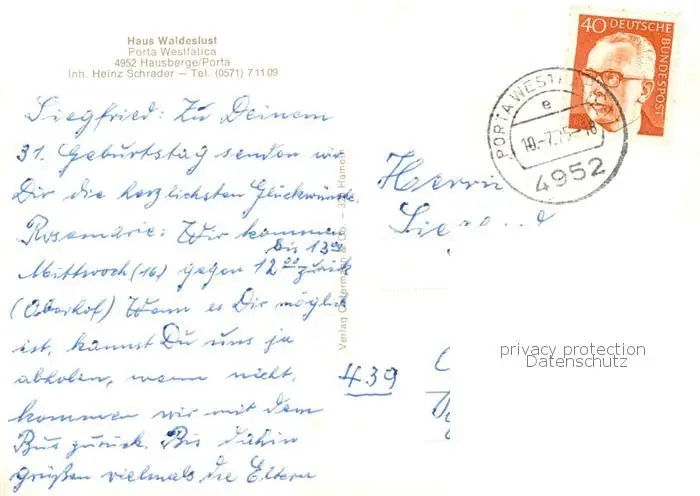 Haus Waldeslust
Porta Westfalica
4952 Hausberge/Porta
Inh. Heinz Schrader — Tel. (0571) 71109
Siegfried: Zu Deinem
31. Geburtstag senden wir
Dir die herzlichsten Glückwünsche.
Rosemarie: Wir kommen
Mittwoch (16.) gegen 12⁰⁰ bis 13⁰⁰ zurück
(Oberhof) Wenn es Dir möglich
ist, kannst Du uns ja
abholen, wenn nicht,
kommen wir mit dem
Bus zurück. Bis dahin
grüßen vielmals die Eltern
Verlag & Co. Hameln
40 DEUTSCHE
BUNDESPOST
PORTA WESTFALICA
e
10.-7.75-18
4952
Herrn
439
privacy protection
Datenschutz